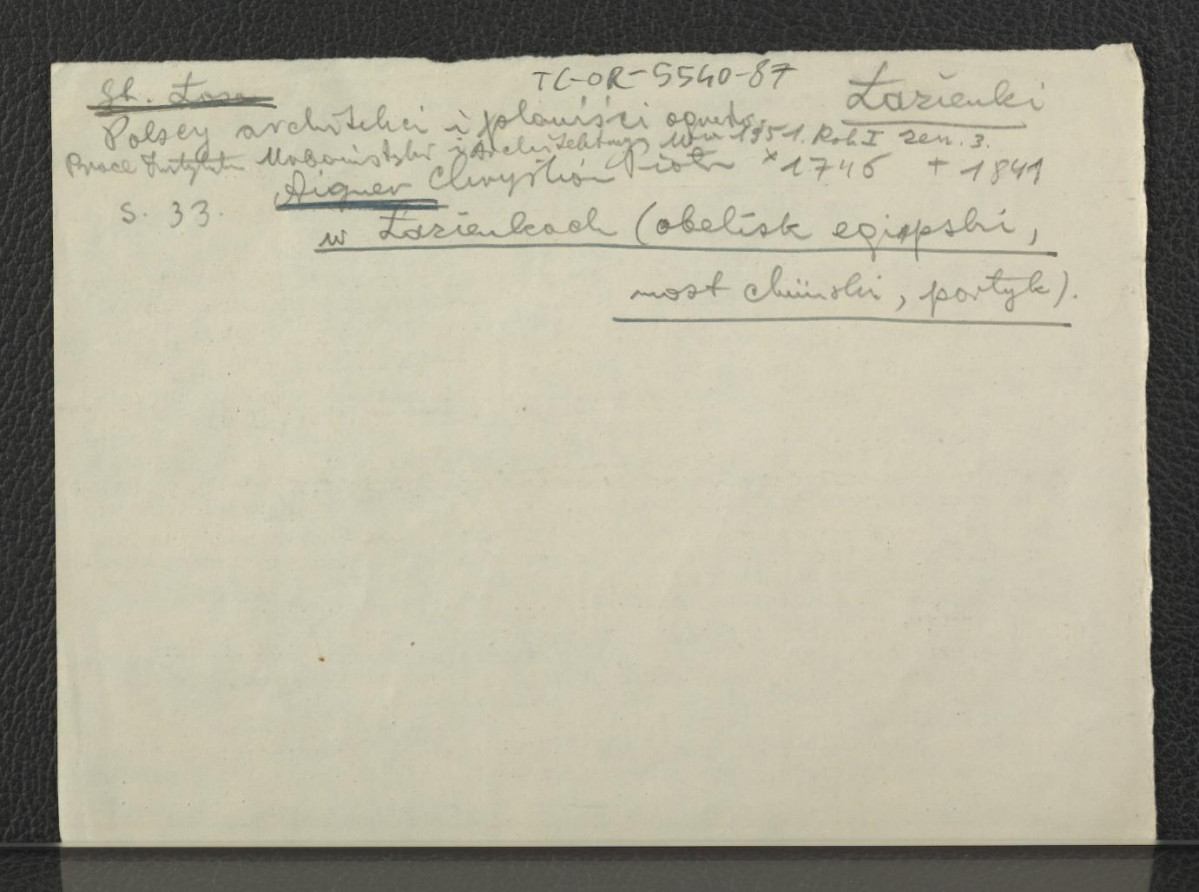 TC-OR-5540-87
Łazienki
St. Łoza
Polscy architekci i planiści ogrodów.
Prace Instytutu Urbanistyki i Architektury W-wa 1951. Rok I zesz. 3.
Aigner Chrystian Piotr × 1746 + 1841
s. 33.
w Łazienkach (obelisk egipski,
most chiński, portyk).